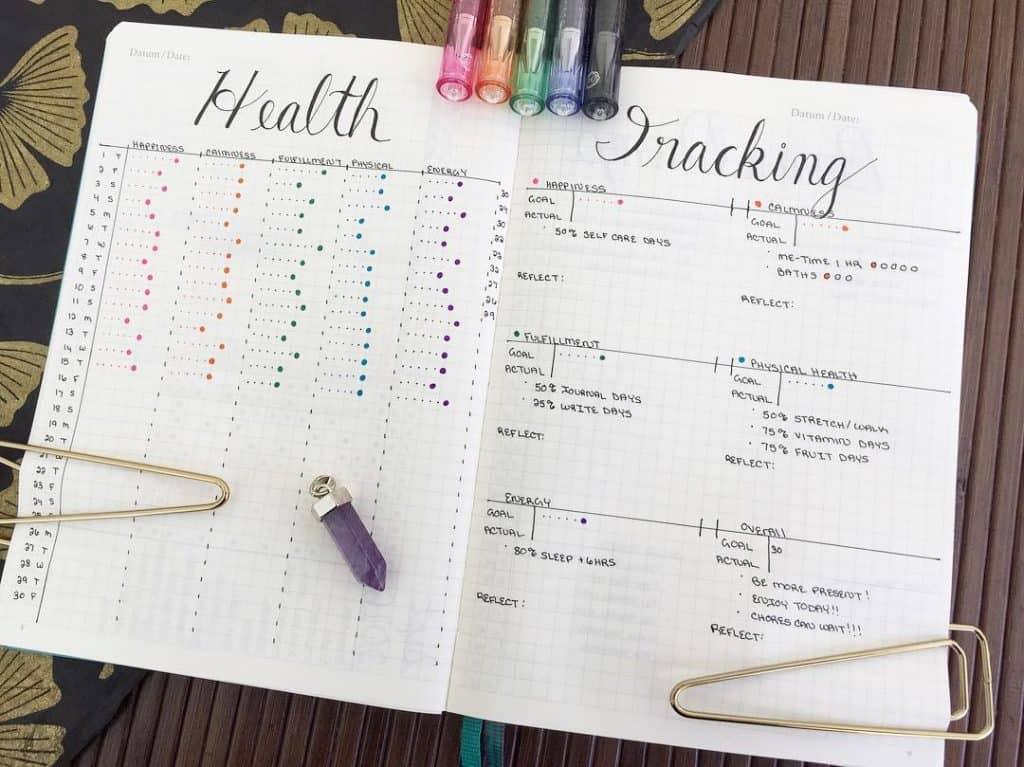 Datum / Date:
Health
HAPPINESS CALMNESS FULFILLMENT PHYSICAL ENERGY
1 T
2 F
3 S
4 S
5 M
6 T
7 W
8 T
9 F
10 S
11 S
12 M
13 T
14 W
15 T
16 F
17 S
18 S
19 M
20 T
22 T
23 F
24 S
26 M
27 T
28 W
29 T
30 F
Datum / Date:
Tracking
HAPPINESS
GOAL
ACTUAL
· 50% SELF CARE DAYS
REFLECT:
CALMNESS
GOAL
ACTUAL
· ME-TIME 1 HR
· BATHS
REFLECT:
FULFILLMENT
GOAL
ACTUAL
· 50% JOURNAL DAYS
· 25% WRITE DAYS
REFLECT:
PHYSICAL HEALTH
GOAL
ACTUAL
· 50% STRETCH/WALK
· 75% VITAMIN DAYS
· 75% FRUIT DAYS
REFLECT:
ENERGY
GOAL
ACTUAL
· 80% SLEEP +6HRS
REFLECT:
OVERALL
GOAL 30
ACTUAL
· BE MORE PRESENT!
· ENJOY TODAY!!
· CHORES CAN WAIT!!!
REFLECT: